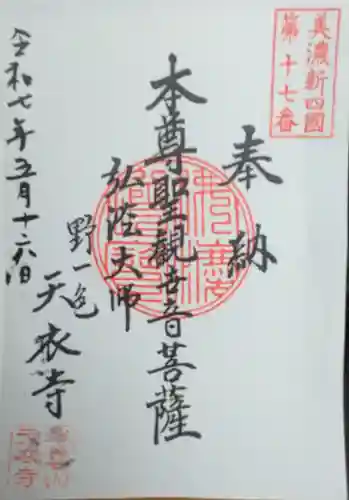 美濃新四國
第十七番
奉納
本尊聖觀世音菩薩
弘法大师
野一色
天衣寺
令和七年五月十六日